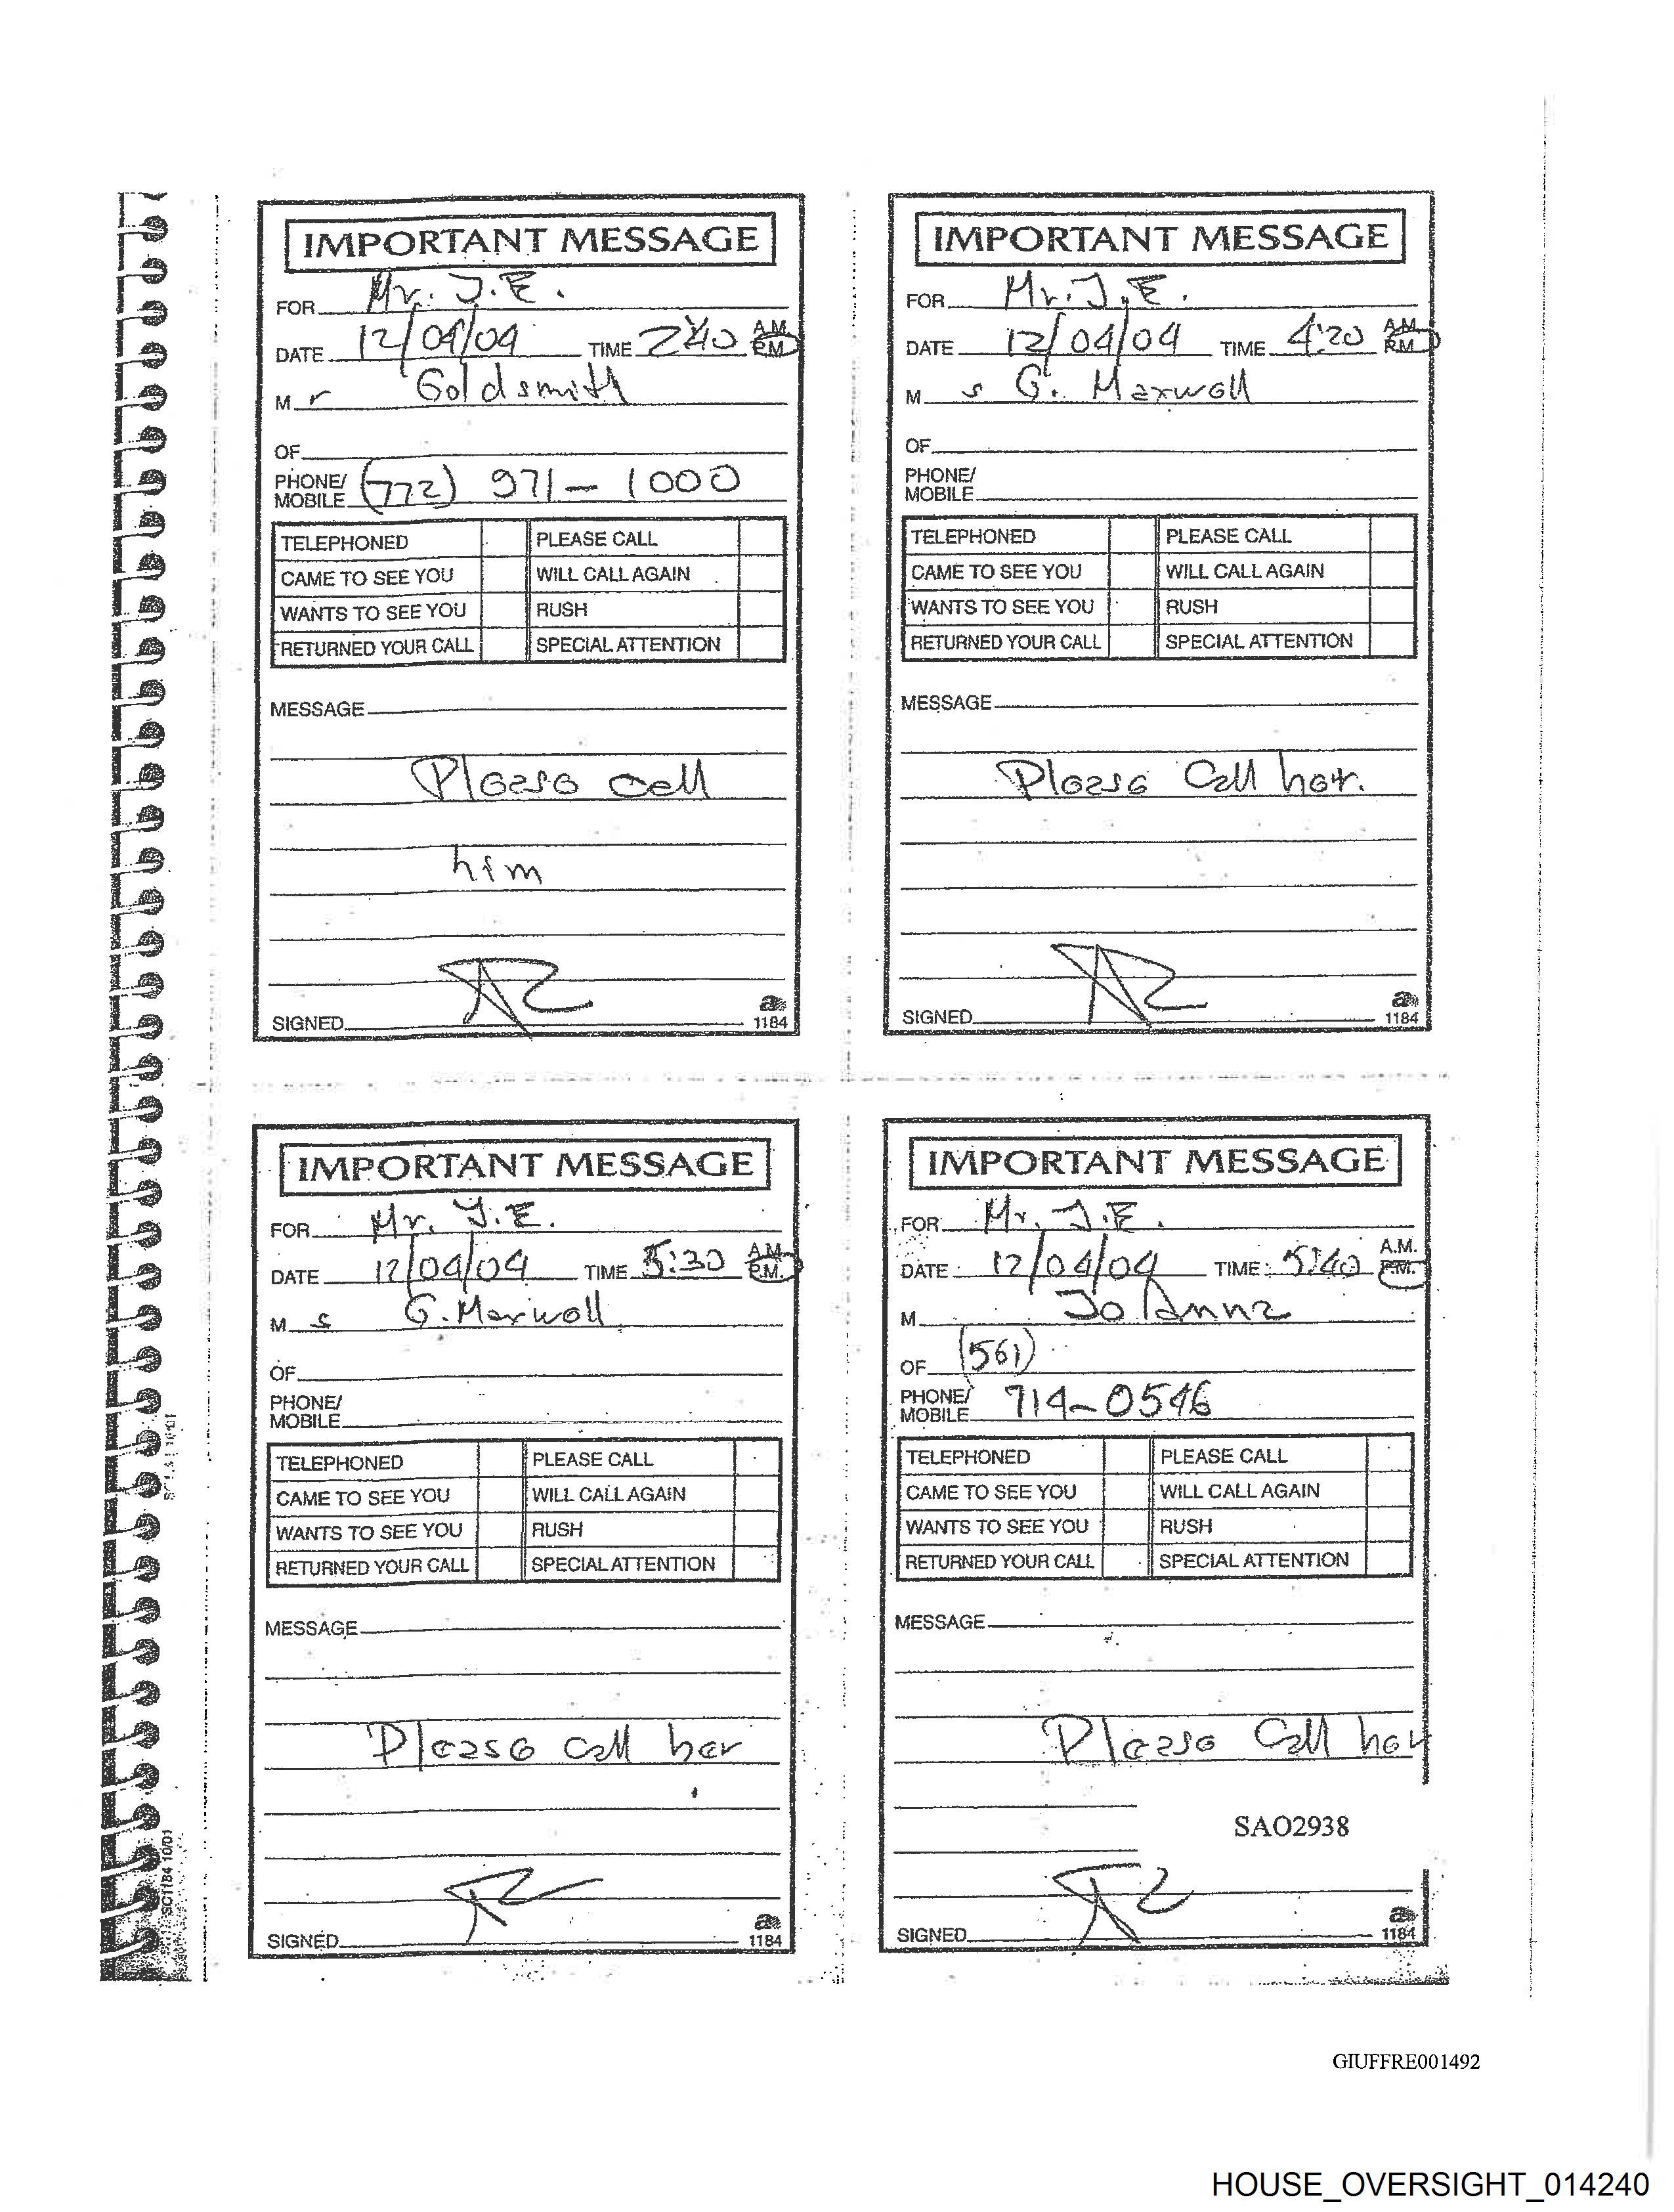 IMPORTANT MESSAGE
FOR Mr. J.E.
DATE 12/04/04 TIME 2:40 A.M. P.M.
Mr Goldsmith
OF
PHONE/
MOBILE (772) 971-1000
TELEPHONED PLEASE CALL
CAME TO SEE YOU WILL CALL AGAIN
WANTS TO SEE YOU RUSH
RETURNED YOUR CALL SPECIAL ATTENTION
MESSAGE
Please call
him
SIGNED
1184
IMPORTANT MESSAGE
FOR Mr. J.E.
DATE 12/04/04 TIME 4:20 A.M. P.M.
Ms G. Maxwell
OF
PHONE/
MOBILE
TELEPHONED PLEASE CALL
CAME TO SEE YOU WILL CALL AGAIN
WANTS TO SEE YOU RUSH
RETURNED YOUR CALL SPECIAL ATTENTION
MESSAGE
Please Call her.
SIGNED
1184
IMPORTANT MESSAGE
FOR Mr. J.E.
DATE 12/04/04 TIME 5:30 A.M. P.M.
Ms G. Maxwell
OF
PHONE/
MOBILE
TELEPHONED PLEASE CALL
CAME TO SEE YOU WILL CALL AGAIN
WANTS TO SEE YOU RUSH
RETURNED YOUR CALL SPECIAL ATTENTION
MESSAGE
Please call her
SIGNED
1184
IMPORTANT MESSAGE
FOR Mr. J.E.
DATE 12/04/04 TIME 5:40 A.M. P.M.
M Jo Anna
OF (561)
PHONE/
MOBILE 714-0546
TELEPHONED PLEASE CALL
CAME TO SEE YOU WILL CALL AGAIN
WANTS TO SEE YOU RUSH
RETURNED YOUR CALL SPECIAL ATTENTION
MESSAGE
Please Call her
SAO2938
SIGNED
1184
SC1184 10/01
GIUFFRE001492
HOUSE_OVERSIGHT_014240